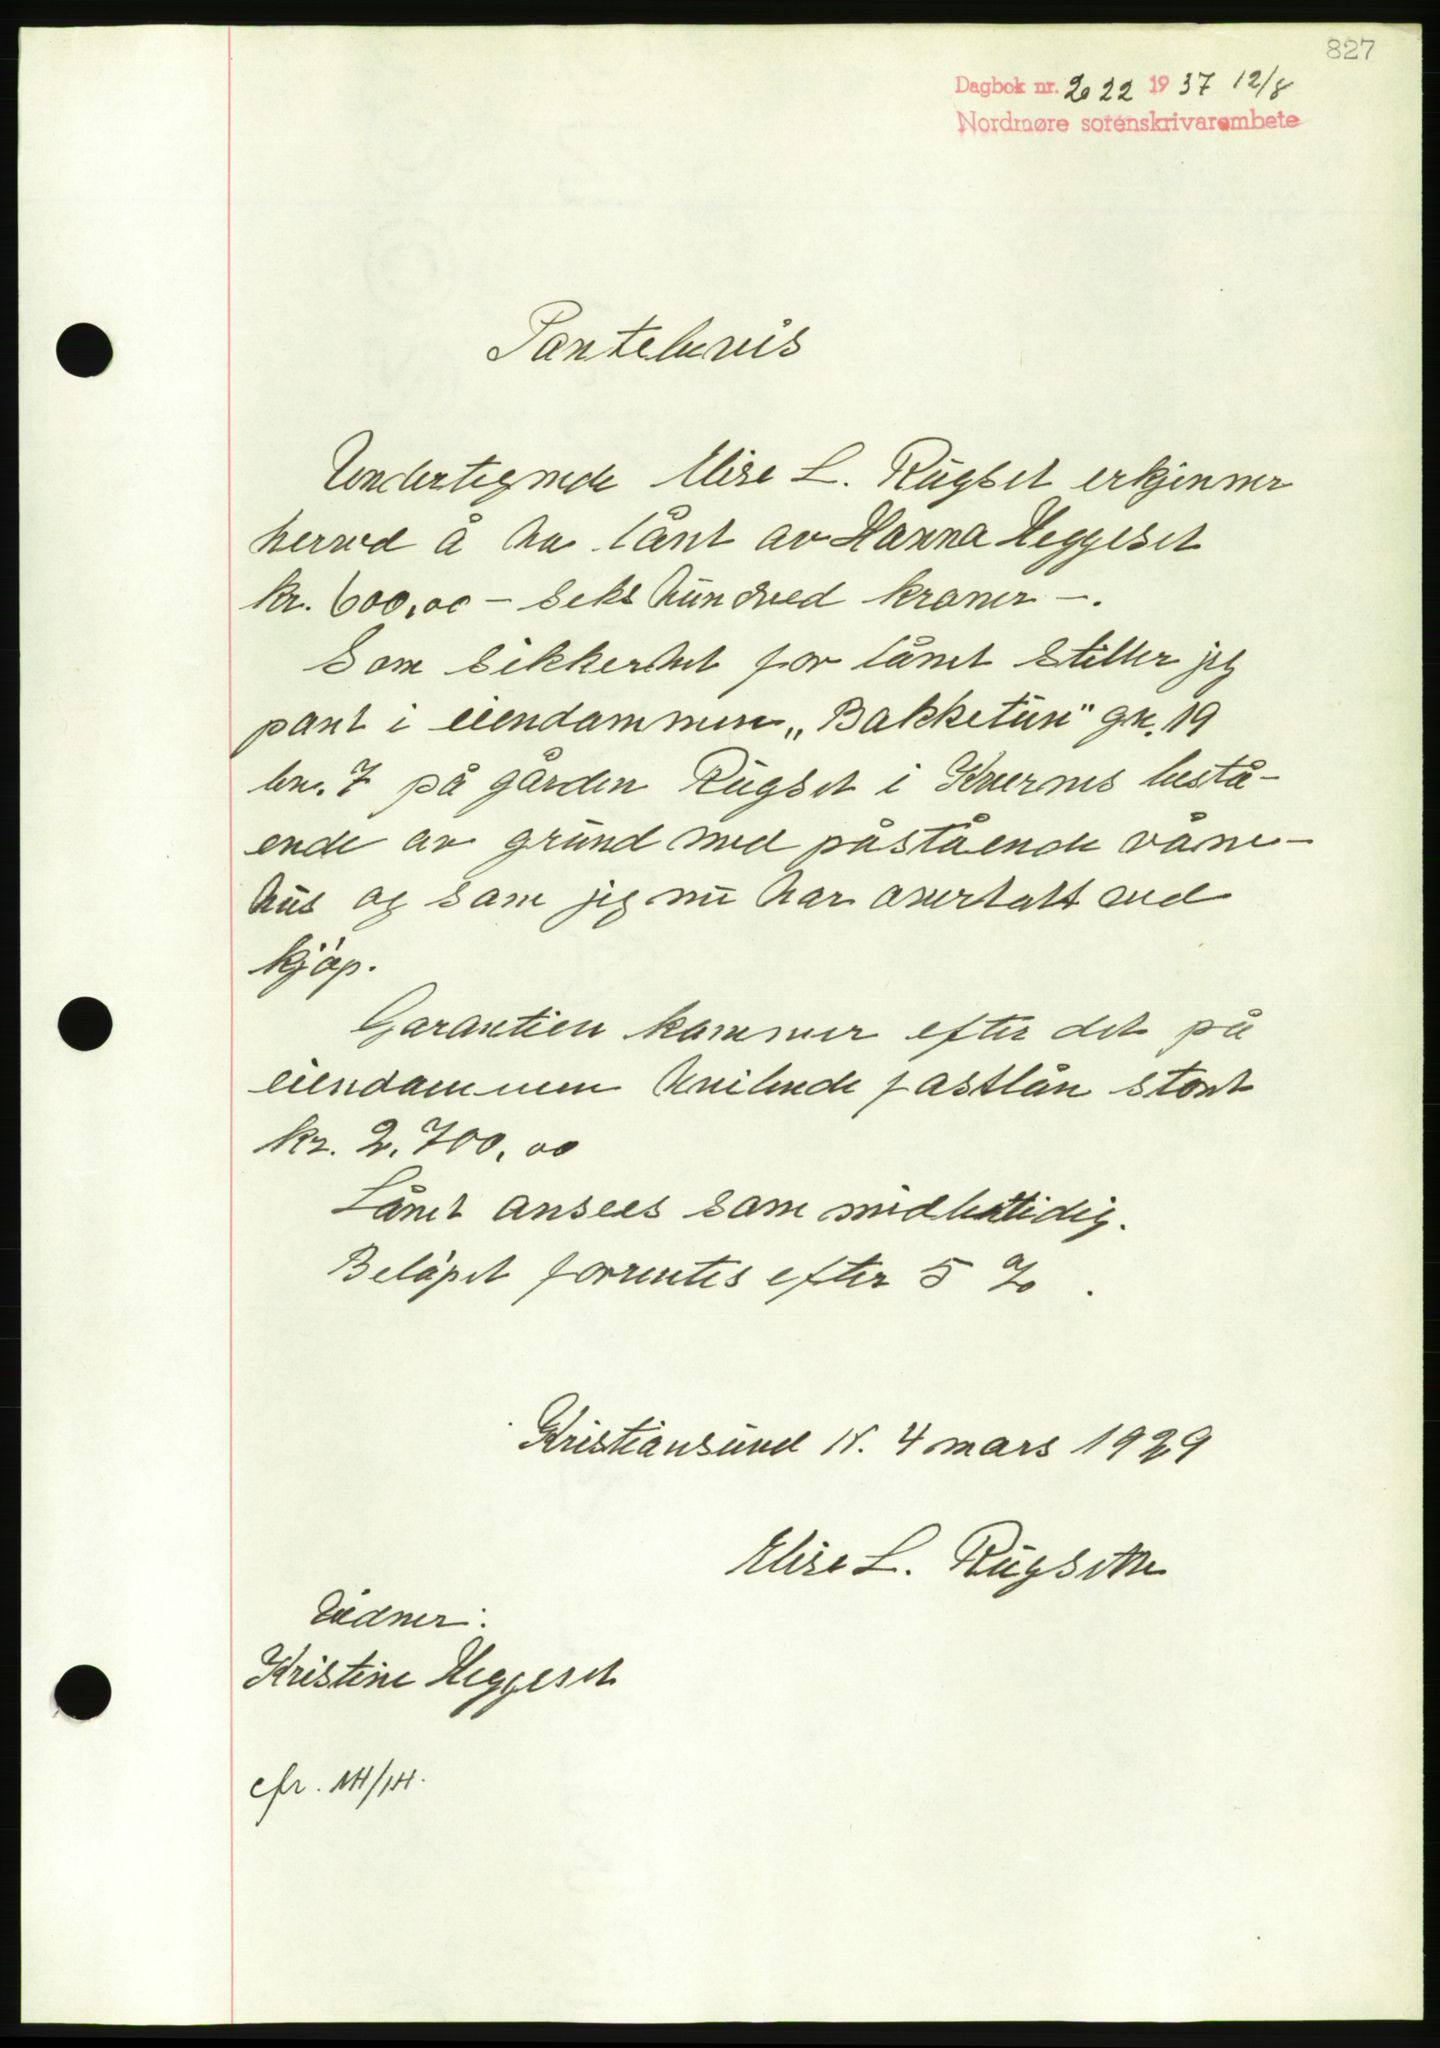 827
Dagbok nr. 2022 1937 12/8
Nordmøre sorenskrivarembete
Pantebevis
Undertegnede Elise L. Rugset erkjenner
herved å ha lånt av Hanna Heggeset
kr. 600,00 – seks hundred kroner –.
Som sikkerhet for lånet stiller jeg
pant i eiendommen „Bakketun" gn. 19
bn. 7 på gården Rugset i Kvernes bestå-
ende av grund med påstående våne-
hus og som jeg nu har overtatt ved
kjöp.
Garantien kommer efter det på
eiendommen hvilende fastlån stort
kr. 2.700,00
Lånet ansees som midlertidig.
Belöpet forrentes efter 5 %.
Kristiansund N. 4 mars 1929
Elise L. Rugseth
Vidner:
Kristine Heggeset
cfr.